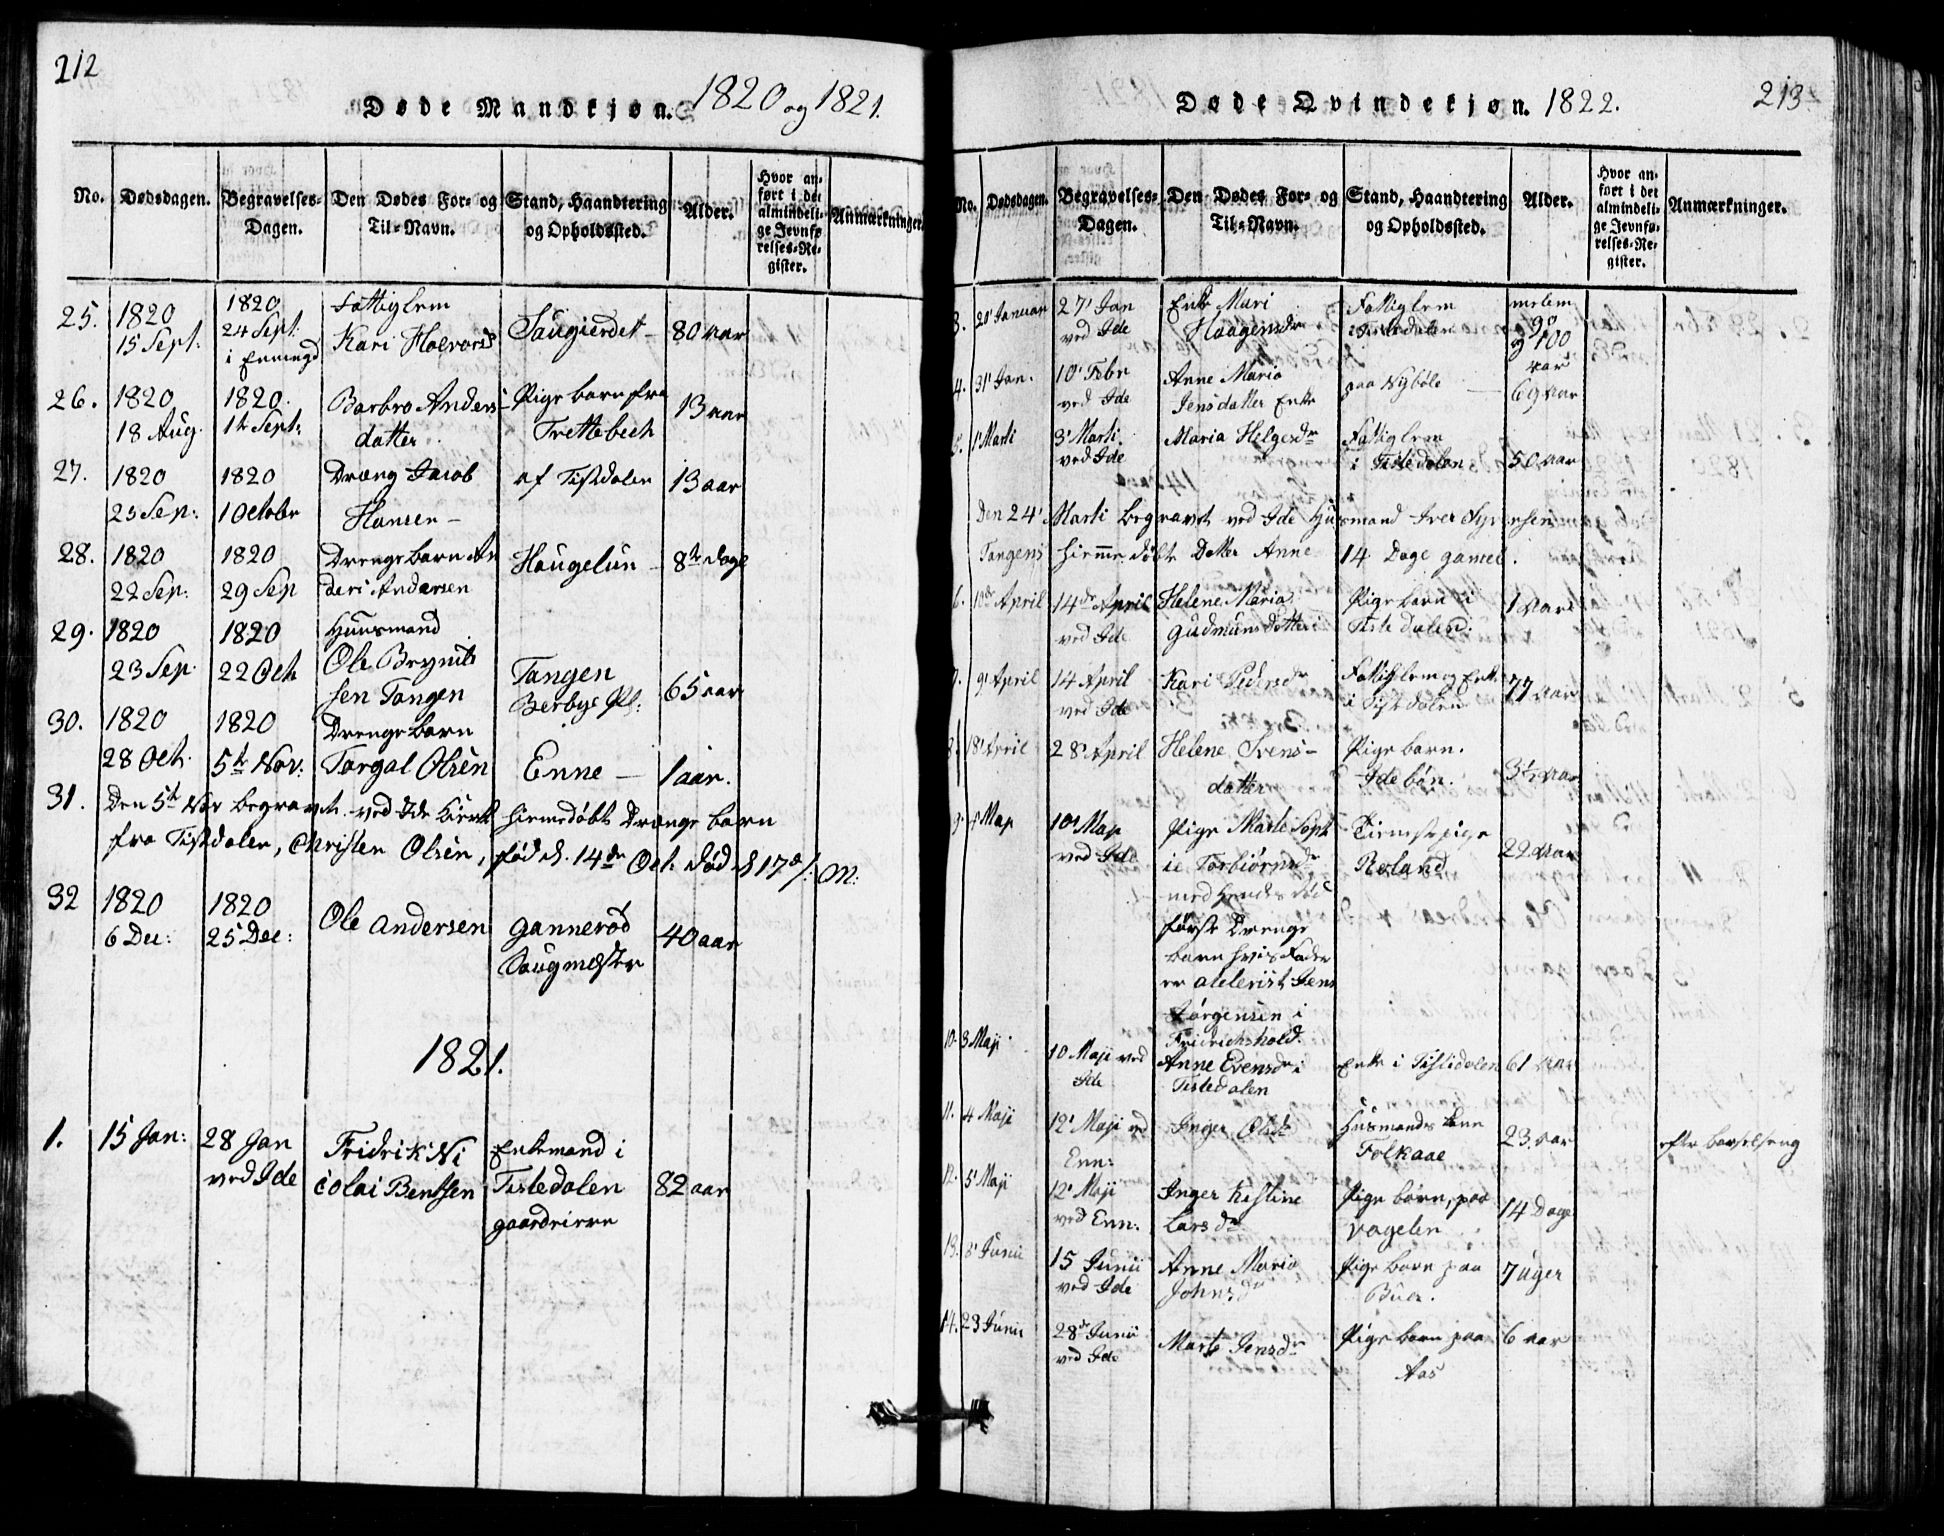 212
Døde Mandkjøn. 1820 og 1821.
No. Dødsdagen. Begravelses-Dagen. Den Dødes For- og Til-Navn. Stand, Haandtering og Opholdssted. Alder. Hvor anført i det almindelige Jevnførelses-Register. Anmærkninger.
25. 1820 15 Sept: 1820 24 Sept: i Enningd Fattiglem Kari Halvords Saugierdet 80 aar
26. 1820 18 Aug. 1820. 1te Sept: Barbro Anders datter Pige barn fra Trettebech 13 aar
27. 1820 23 Sep: 1820 1 Octobr Dræng Jacob Hansen af Tistdalen 13 aar
28. 1820 22 Sep: 1820 29 Sep Drengebarn An ders Andersen Haugelun 8te dage
29. 1820 23 Sep. 1820 22 Oct Huusmand Ole Brynils sen Tangen Tangen Berbye Pl: 65 aar
30. 1820 28 Oct. 1820 5te Nov: Drengebarn Torgal Olsen Enne 1 aar.
31. Den 5te Nov begravet ved Ide Kirke hiemedøbt Drænge barn
fra Tistdalen, Christen Olsen, fød d. 14de Oct død d 17de s: M:
32 1820 6 Dec: 1820 25 Dec: Ole Andersen Gannerød Saugmæster 40 aar
1821.
1. 15 Jan: 28 Jan ved Ide Fridrik Ni colai Bentsen Enkemand i Tistedalen 82 aar
213
Døde Qvindekjøn. 1822.
No. Dødsdagen. Begravelses-Dagen. Den Dødes For- og Til-Navn. Stand, Haandtering og Opholdssted. Alder. Hvor anført i det almindelige Jevnførelses-Register. Anmærkninger.
3. 20' Januar 27' Jan ved Ide Enke Mari Haagensdr Fattiglem i Tistedalen melem 90 og 100 aar
4. 31' Jan. 10' Febr ved Ide Anne Maria Jensdatter Enke paa Nybøle 69 aar
5. 1' Marti 3' Marti ved Ide Maria Helgesdr Fattiglem i Tistedalen 50 aar
Den 24' Marti begravet ved Ide Husmand Iver Syvensen
Tangens hiemedøbte Datter Anne 14 Dage gamel.
6. 10de April 14de April ved Ide Helene Maria Gudmunsdatter Pige barn i Tistedalen. 1 aar
7. 9' April 14 April ved Ide Kari Fattiglem og Enke i Tistedalen 77 aar
8. 18' April 28' April Helene Svens-datter Pige barn. Ide bøn. 3½ aar
9. Maj 10' Maj ved Ide Pige Marte Soph ie Torbiørnsdr med hendes død første Drenge barn hvis Fader er Jens Jørgensen i Fridrichshald. Tieniste pige Roland 22 aar
10. 3 Maji 10 Maji ved Ide Anne Evensdr i Tistedalen Enke i Tistedalen 61 aar
11. 4 Maji 12' Maji ved Enn: Inger Olsdr Husmands Kone Folkaae 23 aar efter barselseng
12. 5' Maji 12' Maji ved Enn: Inger Kistine Larsdr Pige barn, paa Vagelen 14 Dage
13. 8' Junii 15 Junii ved Ide Anne Maria Johnsdr Pige barn paa Buer. 7 uger
14. 23 Junii 28de Junii ved Ide Marte Jensdr Pige barn paa Aas 6 aar